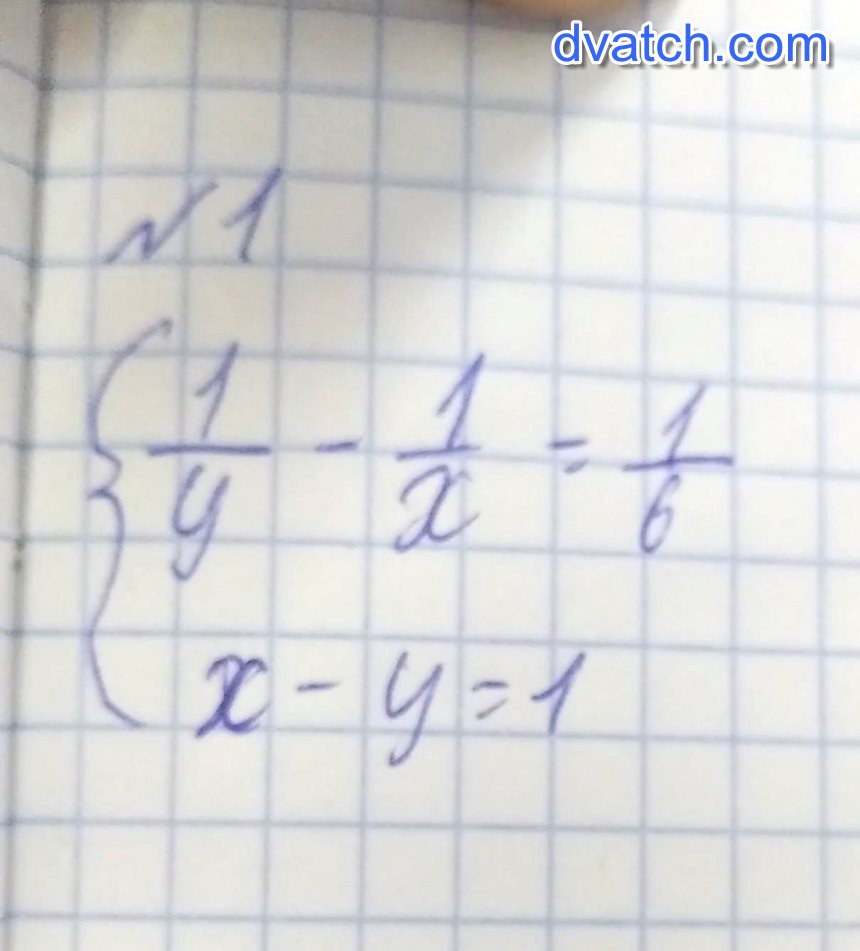 dvatch.com
№1
{ 1/y - 1/x = 1/6
x - y = 1